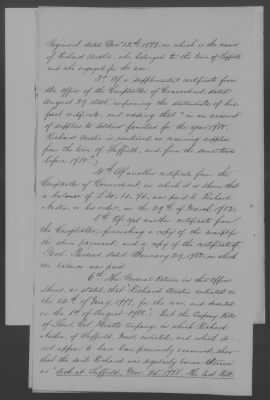 Regiment, dated Nov. 12th 1777, in which is the name
of Richard Austin, who belonged to the town of Suffield,
and who engaged for the war.
3d. Of a supplemental certificate from
the Office of the Comptroller of Connecticut, dated
August 29, confirming the statements of his
first certificate, and adding that "in an account
of supplies to soldiers' families for the year 1780,
Richard Austin is numbered as receiving supplies
from the town of Suffield, and from the same town
before 1780."
4th. Of another certificate from the
Comptroller of Connecticut, in which it is shown that
a balance of was paid to Richard
Austin or his order, on the 29th of March 1782.
5th. Of yet another certificate from
the Comptroller, furnishing a copy of the receipt for
the above payment, and a copy of the certificate of
on which
the balance was paid.
6th. The General Return in this Office
shows, as stated, that Richard Austin enlisted on
the 14th of May, 1777, for the war, and deserted
on the 1st of August 1780. But the Company Rolls
of Company, in which Richard
Austin, of Suffield, enlisted, and which do
not appear to have been previously examined, show
that the said Richard was regularly borne thereon
as Sick at Suffield, Nov. 1778. The last Roll,